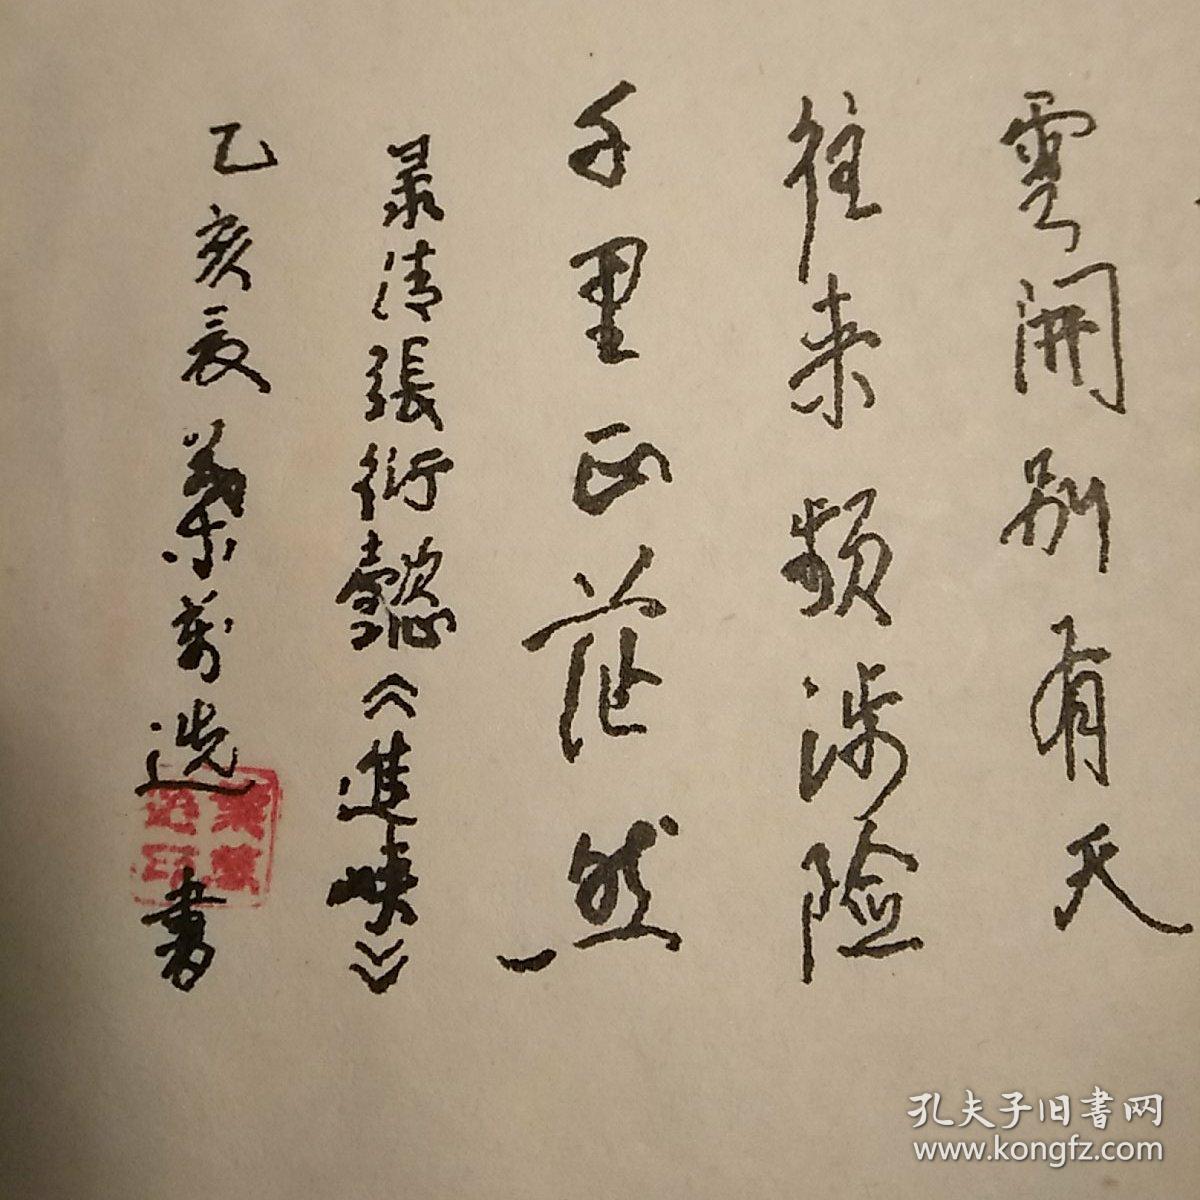 雲開别有天
往来頻涉险
千里正茫然
录清張衍懿《進峡》
乙亥夏葉萬选書
孔夫子旧書网
www.kongfz.com